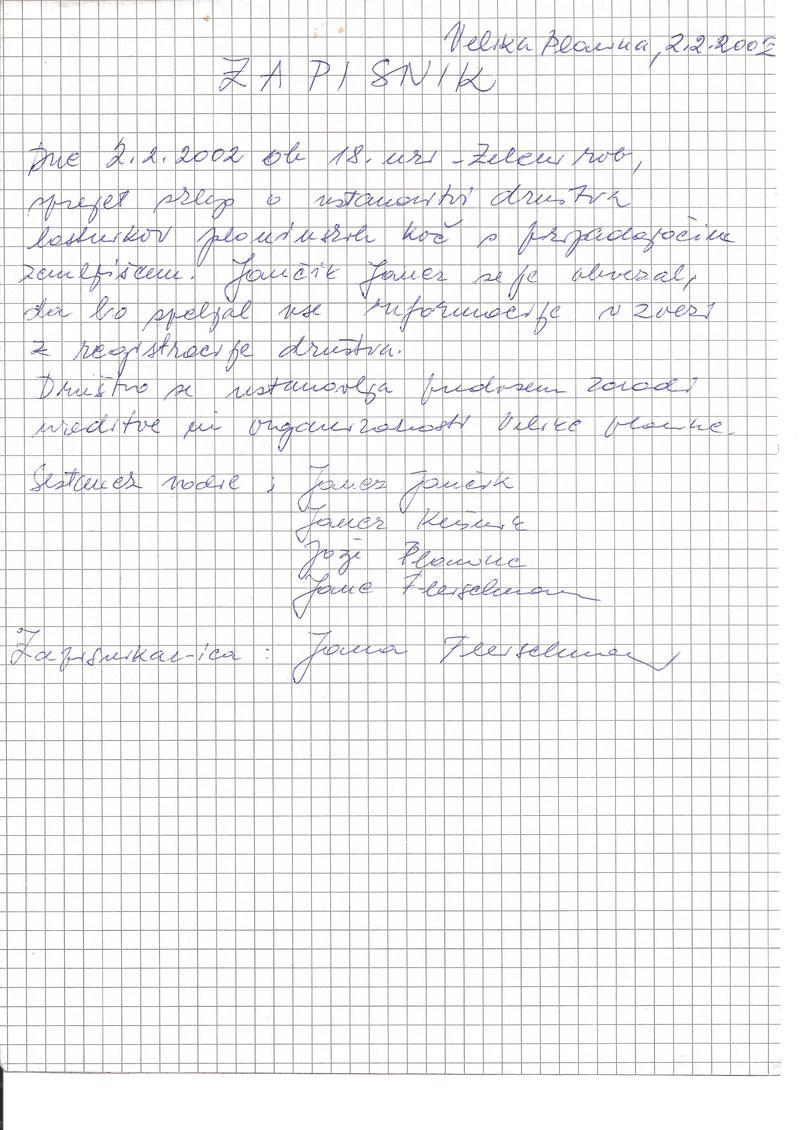 Velika Planina, 2.2.2002
ZAPISNIK
Dne 2.2.2002 ob 18. uri - Zeleni rob,
sprejet sklep o ustanovitvi društva
lastnikov planinskih koč s pripadajočim
zemljiščem. Jančik Janez se je obvezal,
da bo speljal vse informacije v zvezi
z registracije društva.
Društvo se ustanovlja predvsem zaradi
ureditve in organiziranosti Velike planine.
Sestanek vodil: Janez Jančik
Janez
Joži Planinc
Jana Fleischman
Zapisnikar-ica: Jana Fleischman